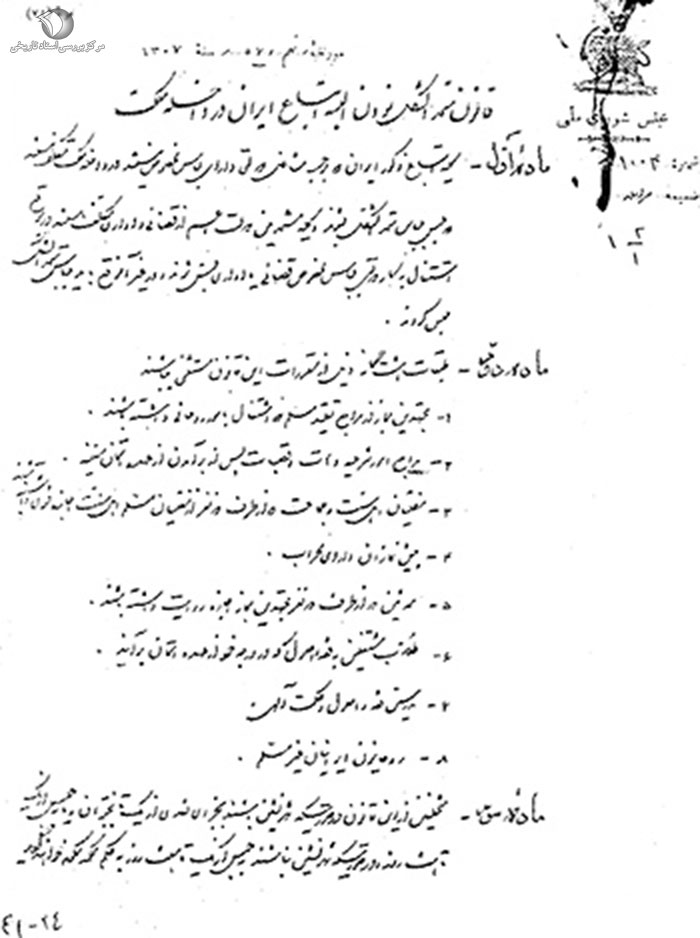 مرکز بررسی اسناد تاریخی
مجلس شورای ملی
نمره ۱۰۰۴
ضمیمه
۱۳۰۷
قانون متحدالشکل نمودن البسه اتباع ایران در داخله مملکت
ماده اول - کلیه اتباع ذکور ایران که بر حسب مشاغل دولتی دارای لباس مخصوص نیستند در داخله مملکت مکلف هستند
که ملبس بلباس متحدالشکل بشوند و کلیه مستخدمین دولت اعم از قضائی و اداری مکلف هستند در موقع
اشتغال بکار دولتی بلباس مخصوص قضائی یا اداری ملبس شوند و در غیر آن موقع باید بلباس متحدالشکل
ملبس گردند .
ماده دوم - طبقات هشت گانه ذیل از مقررات این قانون مستثنی میباشند
۱- مجتهدین مجاز از مراجع تقلید مسلم که اشتغال بامور روحانی داشته باشند .
۲- مراجع امور شرعیه دهات و قصبات پس از برآمدن از عهده امتحان معینه .
۳- مفتیان اهل سنت و جماعت که از طرف دو نفر از مفتیان مسلم اهل سنت اجازه فتوی داشته باشند
۴- پیش نمازان دارای محراب .
۵- محدثین که از طرف دو نفر مجتهدین مجاز اجازه روایت داشته باشند .
۶- طلاب مشتغلین بفقه و اصول که در درجه خود از عهده امتحان برآیند .
۷- مدرسین فقه و اصول و حکمت الهی
۸- روحانیون ایرانیان غیر مسلم .
ماده سوم - متخلفین از این قانون در صورتیکه شهرنشین باشند بجزای نقدی از یک تا پنج تومان یا بحبس از یک
تا هفت روز و در صورتیکه شهرنشین نباشند بحبس از یک تا هفت روز بحکم محکمه محکوم خواهند گردید